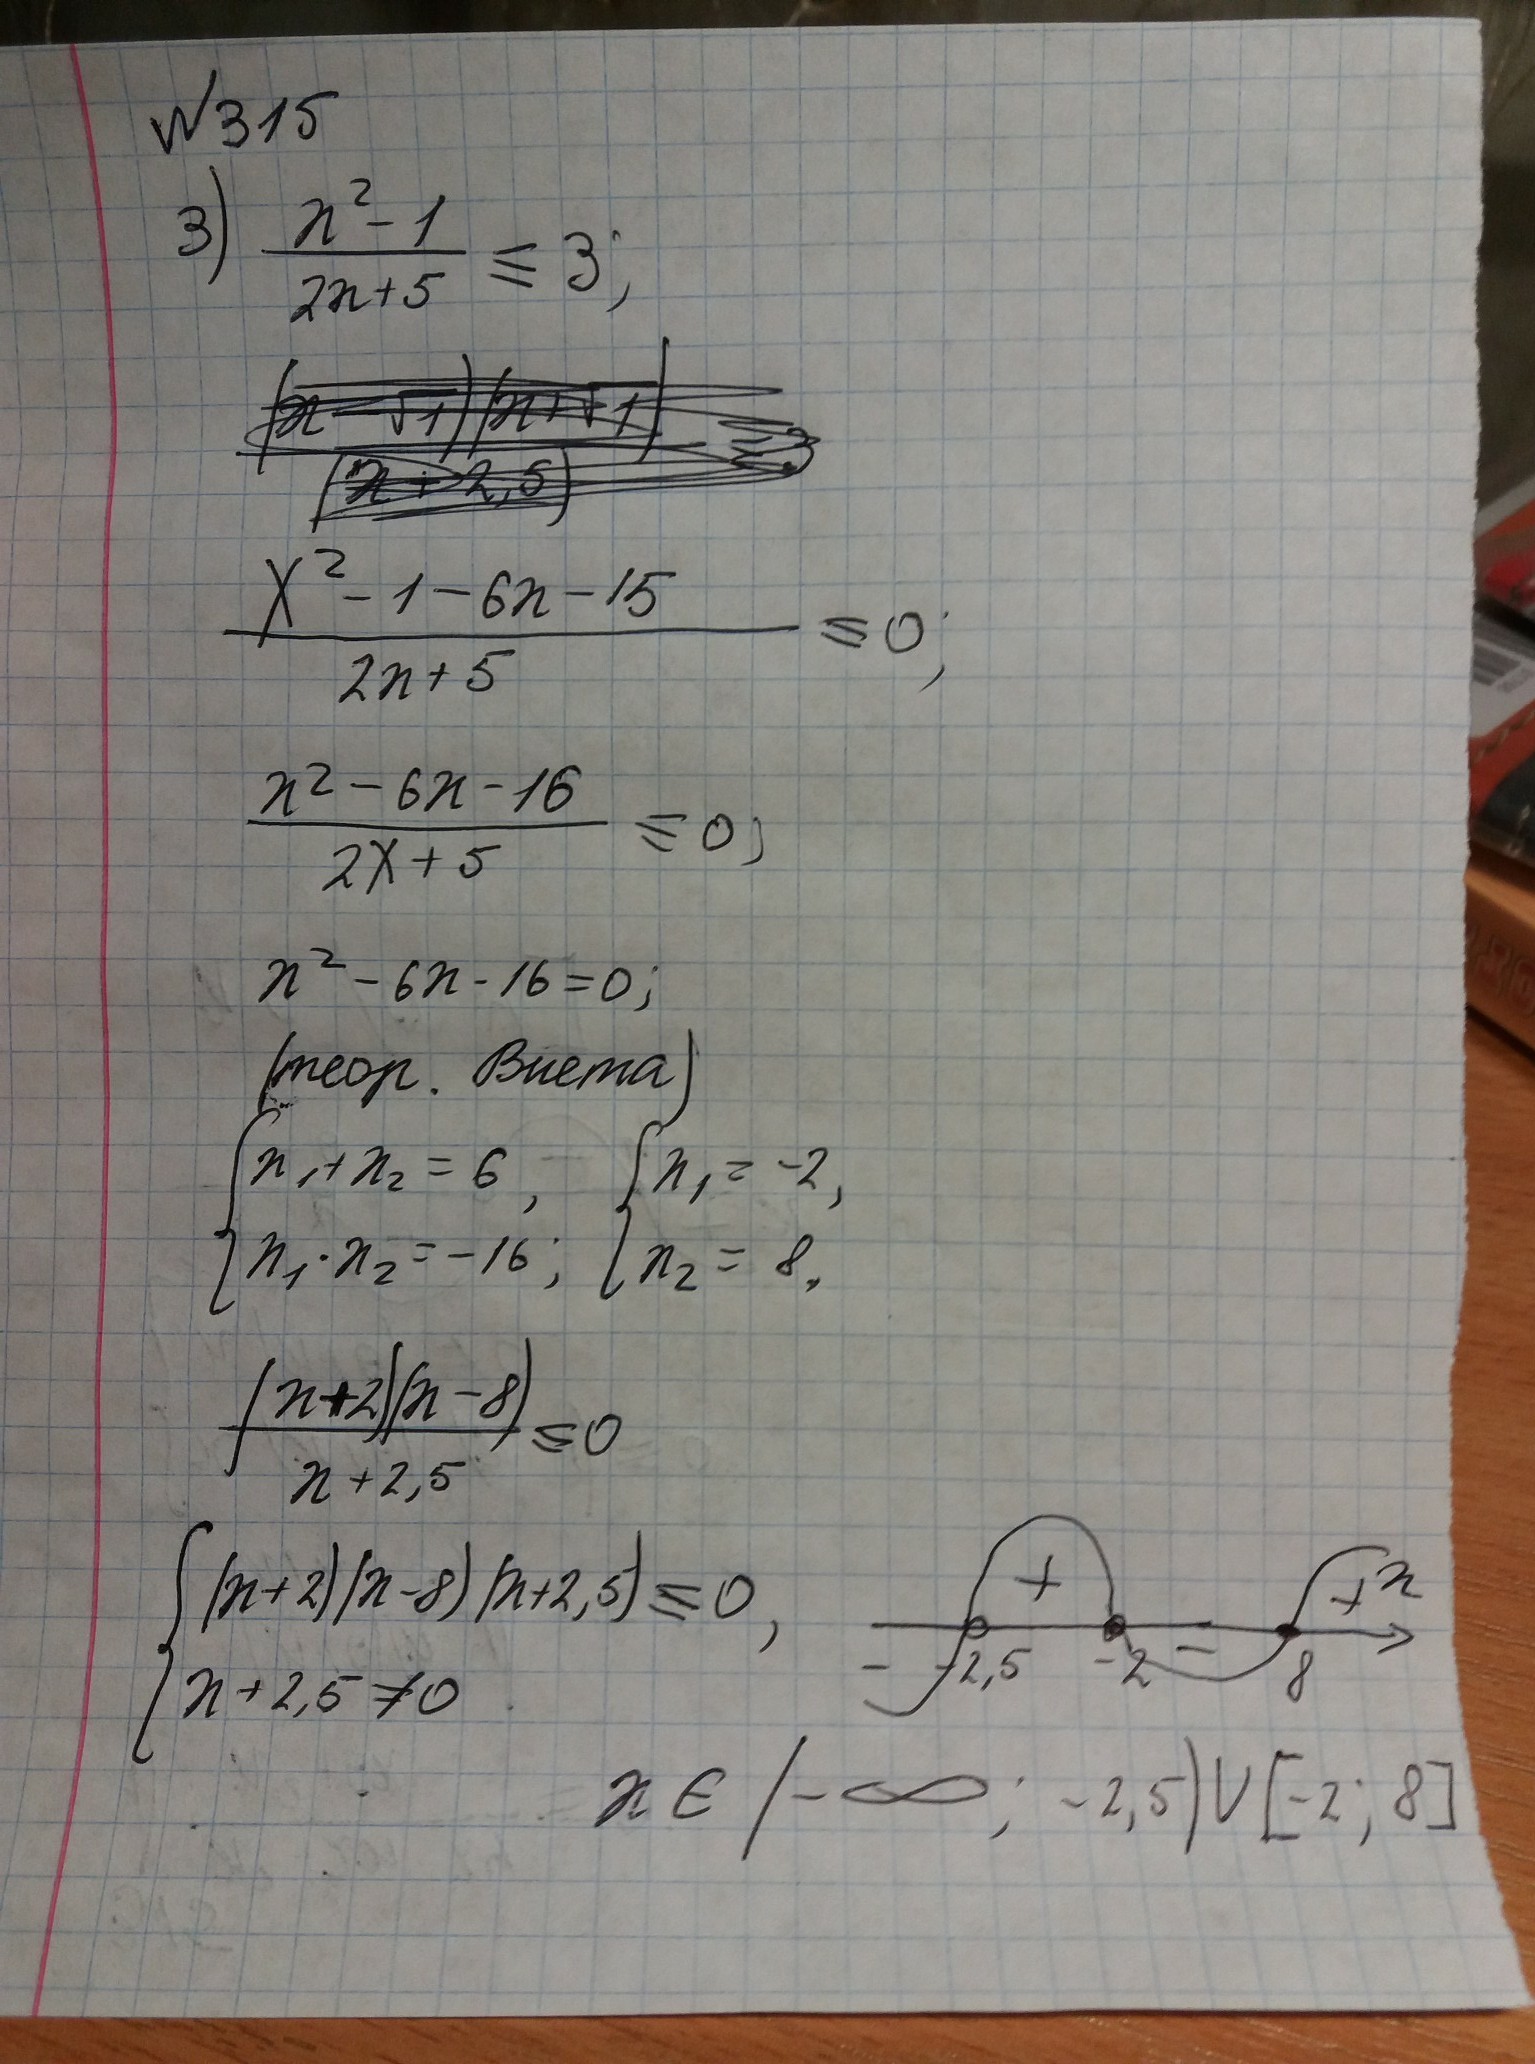 №315
3) (x² - 1)/(2x + 5) ≤ 3;
(x - √1)(x + √1)/(x + 2,5) ≤ 3
(x² - 1 - 6x - 15)/(2x + 5) ≤ 0;
(x² - 6x - 16)/(2x + 5) ≤ 0;
x² - 6x - 16 = 0;
(теор. Виета)
{ x₁ + x₂ = 6, { x₁ = -2,
{ x₁ · x₂ = -16; { x₂ = 8.
(x + 2)(x - 8)/(x + 2,5) ≤ 0
{ (x + 2)(x - 8)(x + 2,5) ≤ 0,
{ x + 2,5 ≠ 0
+ + x
- -2,5 -2 - 8
x ∈ (-∞; -2,5) ∪ [-2; 8]